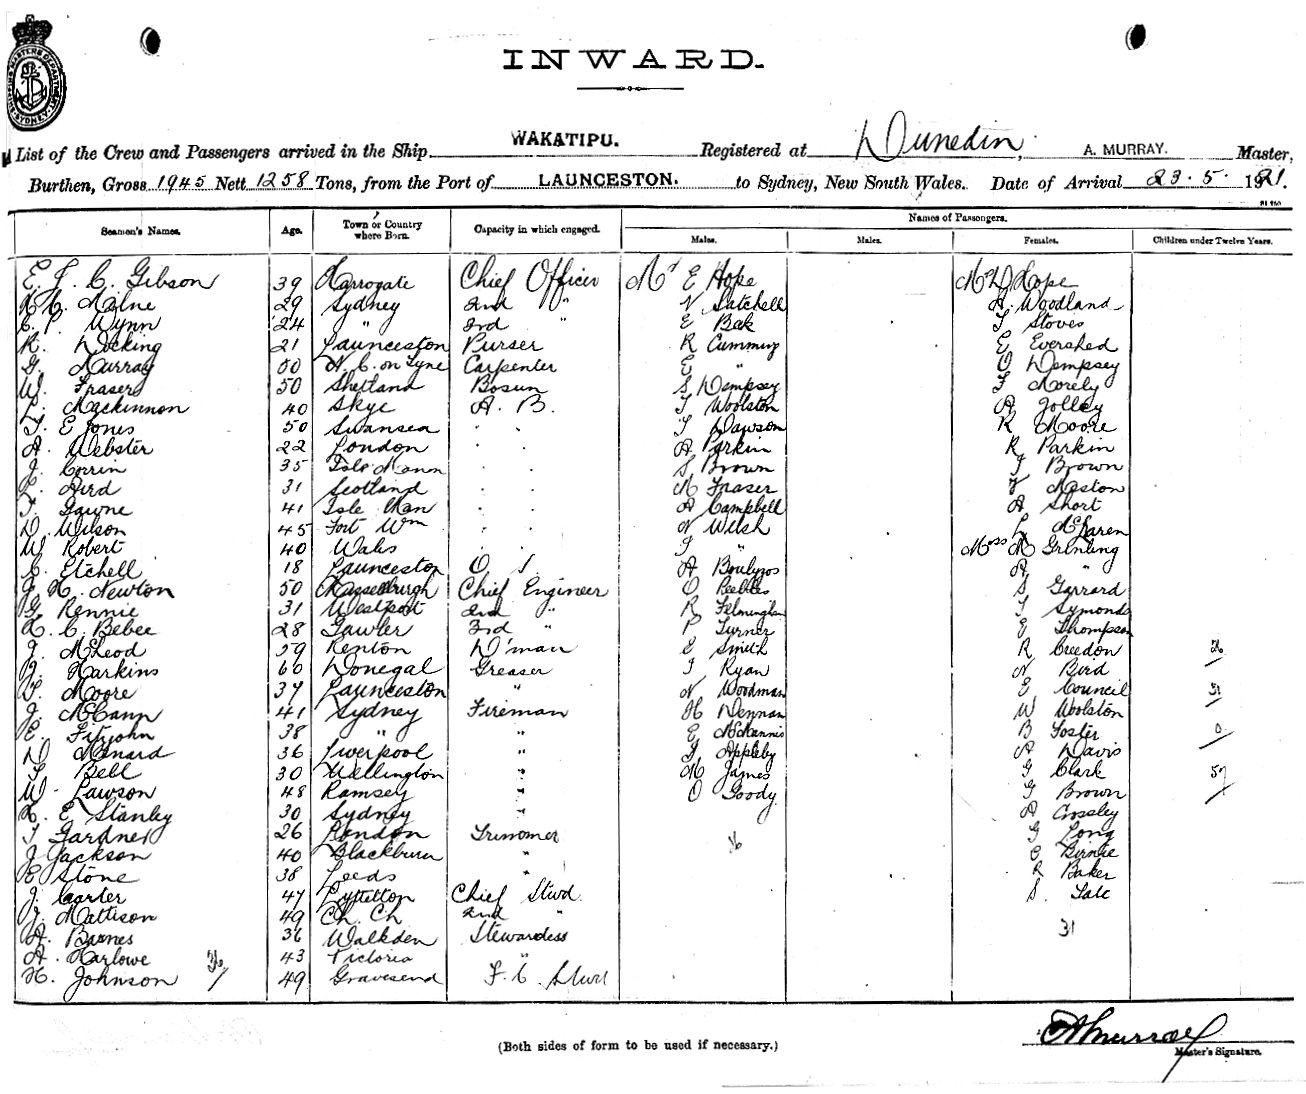 SHIPPING MASTERS DEPARTMENT SYDNEY
INWARD.
List of the Crew and Passengers arrived in the Ship WAKATIPU. Registered at Dunedin, A. MURRAY. Master,
Burthen, Gross 1945 Nett 1258 Tons, from the Port of LAUNCESTON. to Sydney, New South Wales. Date of Arrival 23. 5. 1921.
Seamen's Names. Age. Town or Country where Born. Capacity in which engaged. Names of Passengers.
Males. Males. Females. Children under Twelve Years.
E. J. C. Gibson 39 Harrogate Chief Officer Mr E Hope Mrs D Hope
Milne 29 Sydney 2nd " N Satchell A. Woodland
C. P. Wynn 24 " 3rd " E Bak T Stoves
R. Docking 21 Launceston Purser R Cumming E Evershed
G. Murray 60 N. C. on Tyne Carpenter E " O Dempsey
W. Fraser 50 Shetland Bosun S Dempsey F Morely
L. Mackinnon 40 Skye A. B. T Woolston A Jolley
T. E Jones 50 Swansea " " T Dawson R Moore
A. Webster 22 London " " A Parkin R Parkin
J. Corrin 35 Isle Mann " " S Brown J Brown
Aird 31 Scotland " " M Fraser Maston
T. Gawne 41 Isle Man " " A Campbell A Short
D. Wilson 45 Fort Wm " " N Welsh L McLaren
W. Robert 40 Wales " " J " Miss M Grenling
C. Etchell 18 Launceston O S. A Boulyros A "
J. H. Newton 50 Musselburgh Chief Engineer O Peebles S Garrard
G. Rennie 31 Westport 2nd " R Felmingham T Symonds
H. C. Bebee 28 Gawler 3rd " P Turner E Thompson
J. McLeod 59 Renton D'man E Smith R Creedon 36
Harkins 60 Donegal Greaser J Ryan N Bird
Moore 37 Launceston " N Woodman E Council 31
J. McCann 41 Sydney Fireman H Dennan W Woolston
E. Fitzjohn 38 " " E McMannis B Foster 0
D. Menard 36 Liverpool " J Appleby A Davis
T Bell 30 Wellington " M James G Clark 57
W. Lawson 48 Ramsey " O Goody G Brown
H. E Stanley 30 Sydney " A Crossley
T Gardner 26 London Trimmer 26 G Long
J Jackson 40 Blackburn " C Birnie
E Stone 38 Leeds " R Baker
J. Carter 47 Lyttelton Chief Stwd S. Tale
Mattison 49 Ch. Ch 2nd "
A. Barnes 36 Walkden Stewardess 31
A. Harlowe 43 Victoria "
H. Johnson 36 49 Gravesend F. C. Stwd
A Murray
(Both sides of form to be used if necessary.) Master's Signature.